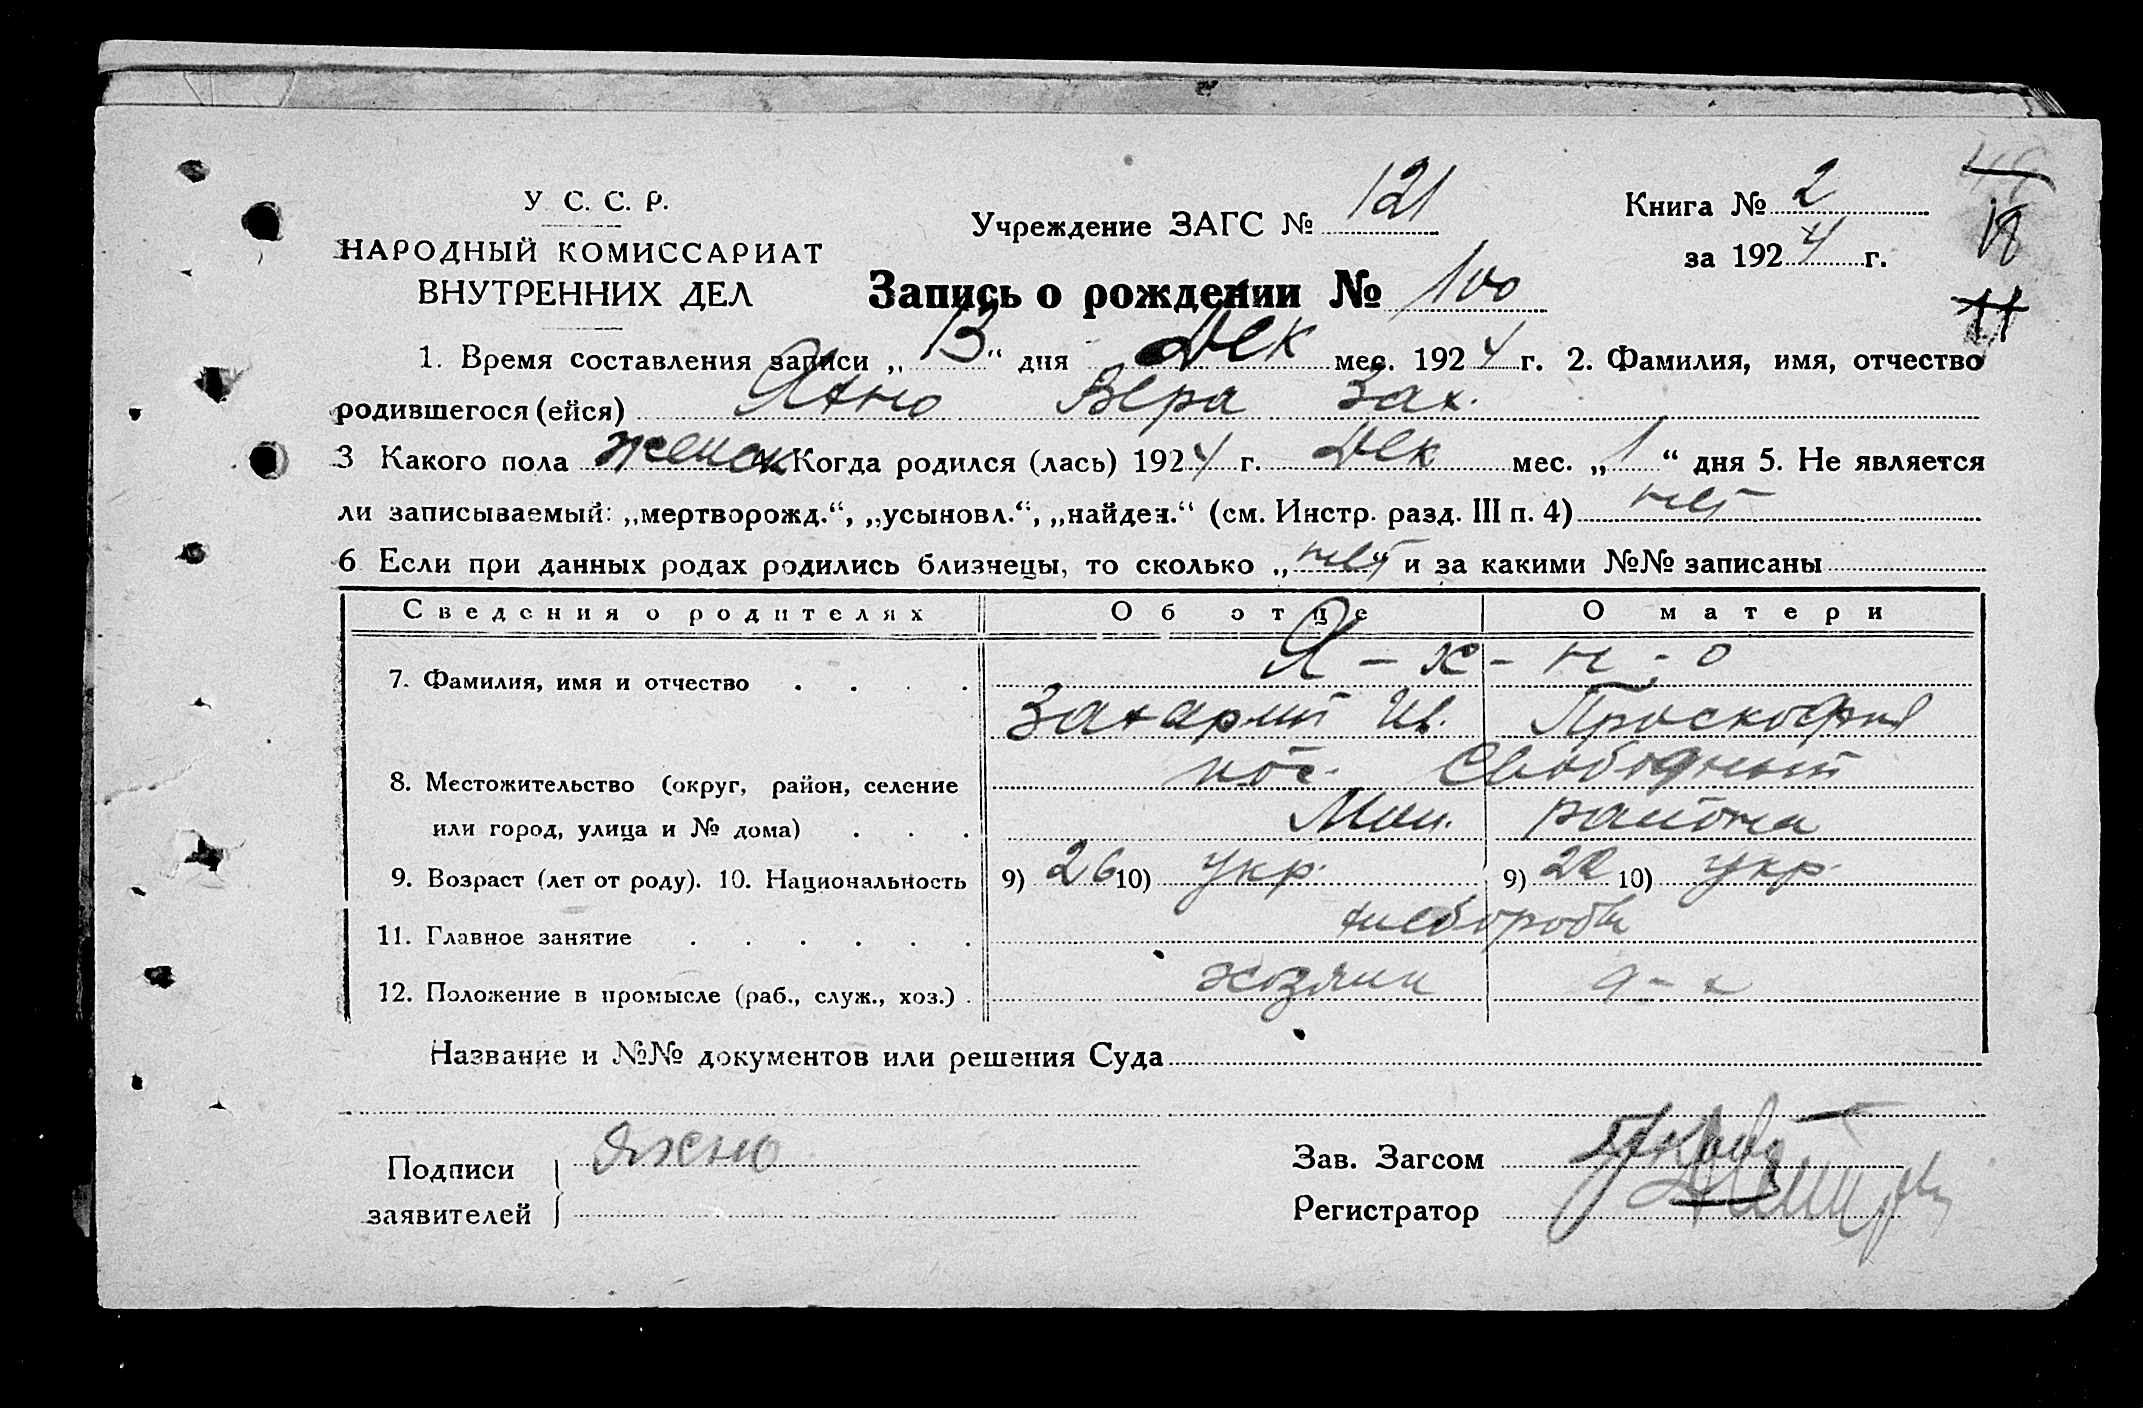 У. С. С. Р.
НАРОДНЫЙ КОМИССАРИАТ
ВНУТРЕННИХ ДЕЛ
Учреждение ЗАГС № 121
Книга № 2
за 1924 г.
18
11
Запись о рождении № 100
1. Время составления записи „13“ дня Дек мес. 1924 г. 2. Фамилия, имя, отчество
родившегося (ейся) Яхно Вера Зах.
3 Какого пола женск Когда родился (лась) 1924 г. Дек мес. „1“ дня 5. Не является
ли записываемый: „мертворожд.“, „усыновл.“, „найден.“ (см. Инстр. разд. III п. 4) нет
6 Если при данных родах родились близнецы, то сколько „нет“ и за какими №№ записаны
Сведения о родителях Об отце О матери
7. Фамилия, имя и отчество Я - х - н - о
Захарий Ив. Проскофия
8. Местожительство (округ, район, селение пос. Свободный
или город, улица и № дома) Ман. района
9. Возраст (лет от роду). 10. Национальность 9) 26 10) укр. 9) 22 10) укр.
11. Главное занятие хлебороб
12. Положение в промысле (раб., служ., хоз.) хозяин д-х
Название и №№ документов или решения Суда
Подписи заявителей Яхно
Зав. Загсом
Регистратор